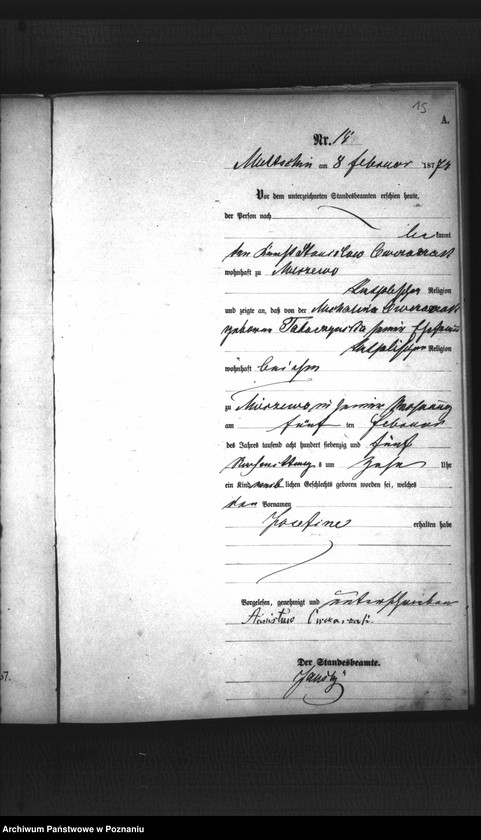 15
A.
Nr. 14
Meltschin am 8 Februar 1875
Vor dem unterzeichneten Standesbeamten erschien heute,
der Person nach
be kannt
der Knecht Stanislaw
wohnhaft zu Murzewo
katholischer Religion
und zeigte an, daß von der Michalina
geboren seiner Ehefrau
katholischer Religion
wohnhaft bei ihm
zu Murzewo in seiner Wohnung
am fünf ten Februar
des Jahres tausend acht hundert siebenzig und fünf
Nachmittag s um zehn Uhr
ein Kind weib lichen Geschlechts geboren worden sei, welches
den Vornamen
Josefine erhalten habe
Vorgelesen, genehmigt und unterschrieben
Der Standesbeamte.
Archiwum Państwowe w Poznaniu